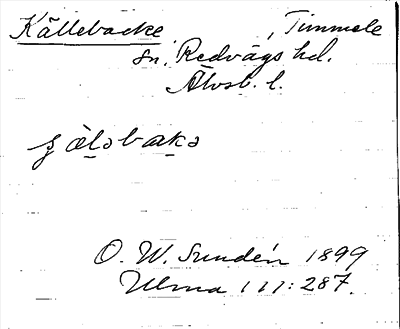 Källebacke, Timmele
sn, Redvägs hd.
Älvsb. l.
ʂäləbakə
O. W. Sundén 1899
Ulma 111:287.